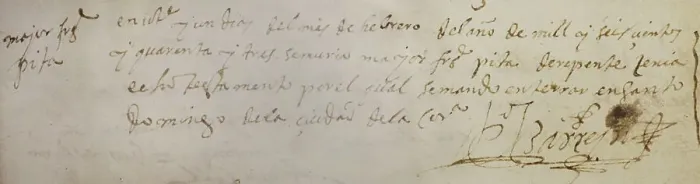 major frz pita
en vte y un dias del mes de hebrero del año de mill y seiscientos
y quarenta y tres se muria major frz pita de repente tenia
echo testamento por el qual se mando enterrar en santo
domingo de la ciudad de la Corª